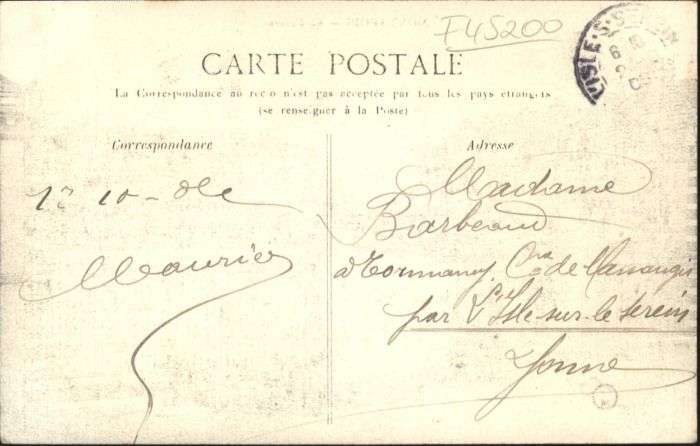 F45200
L'ISLE-S-SEREIN
CARTE POSTALE
La Correspondance au recto n'est pas acceptée par tous les pays étrangers
(se renseigner à la Poste)
Correspondance
Adresse
Maurice
Madame
Barbeaud
de Massangis
par L'Isle-sur-le Serein
Yonne